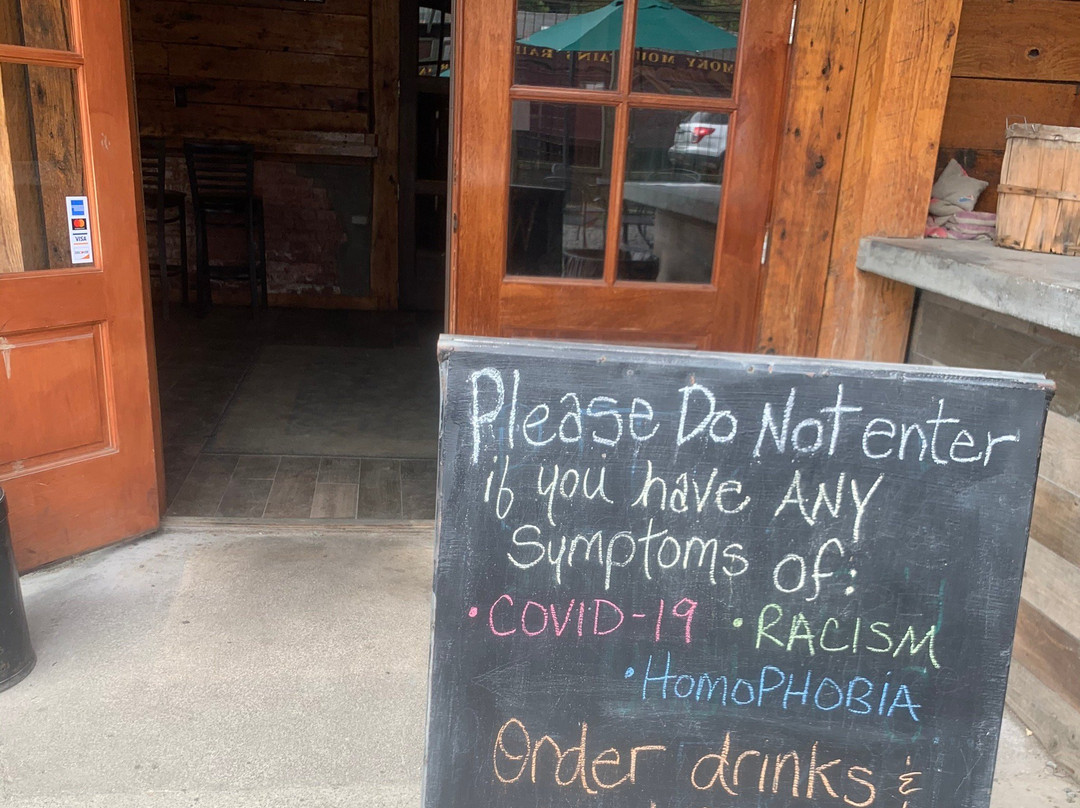 Please Do Not enter
if you have ANY
Symptoms of:
• COVID-19 • RACISM
• HomoPHOBiA
Order drinks &
SMOKY MOUNTAIN RAIL
VISA